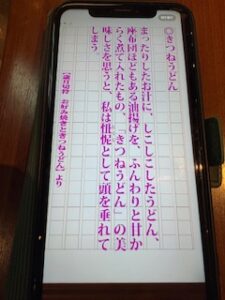 ◎きつねうどん
まったりしたお汁に、しこしこしたうどん、
座布団ほどもある油揚げを、ふんわりと甘か
らく煮て入れたもの、「きつねうどん」の美
味しさを思うと、私は忸怩として頭を垂れて
しまう
【歳月切符　お好み焼きときつねうどん】より